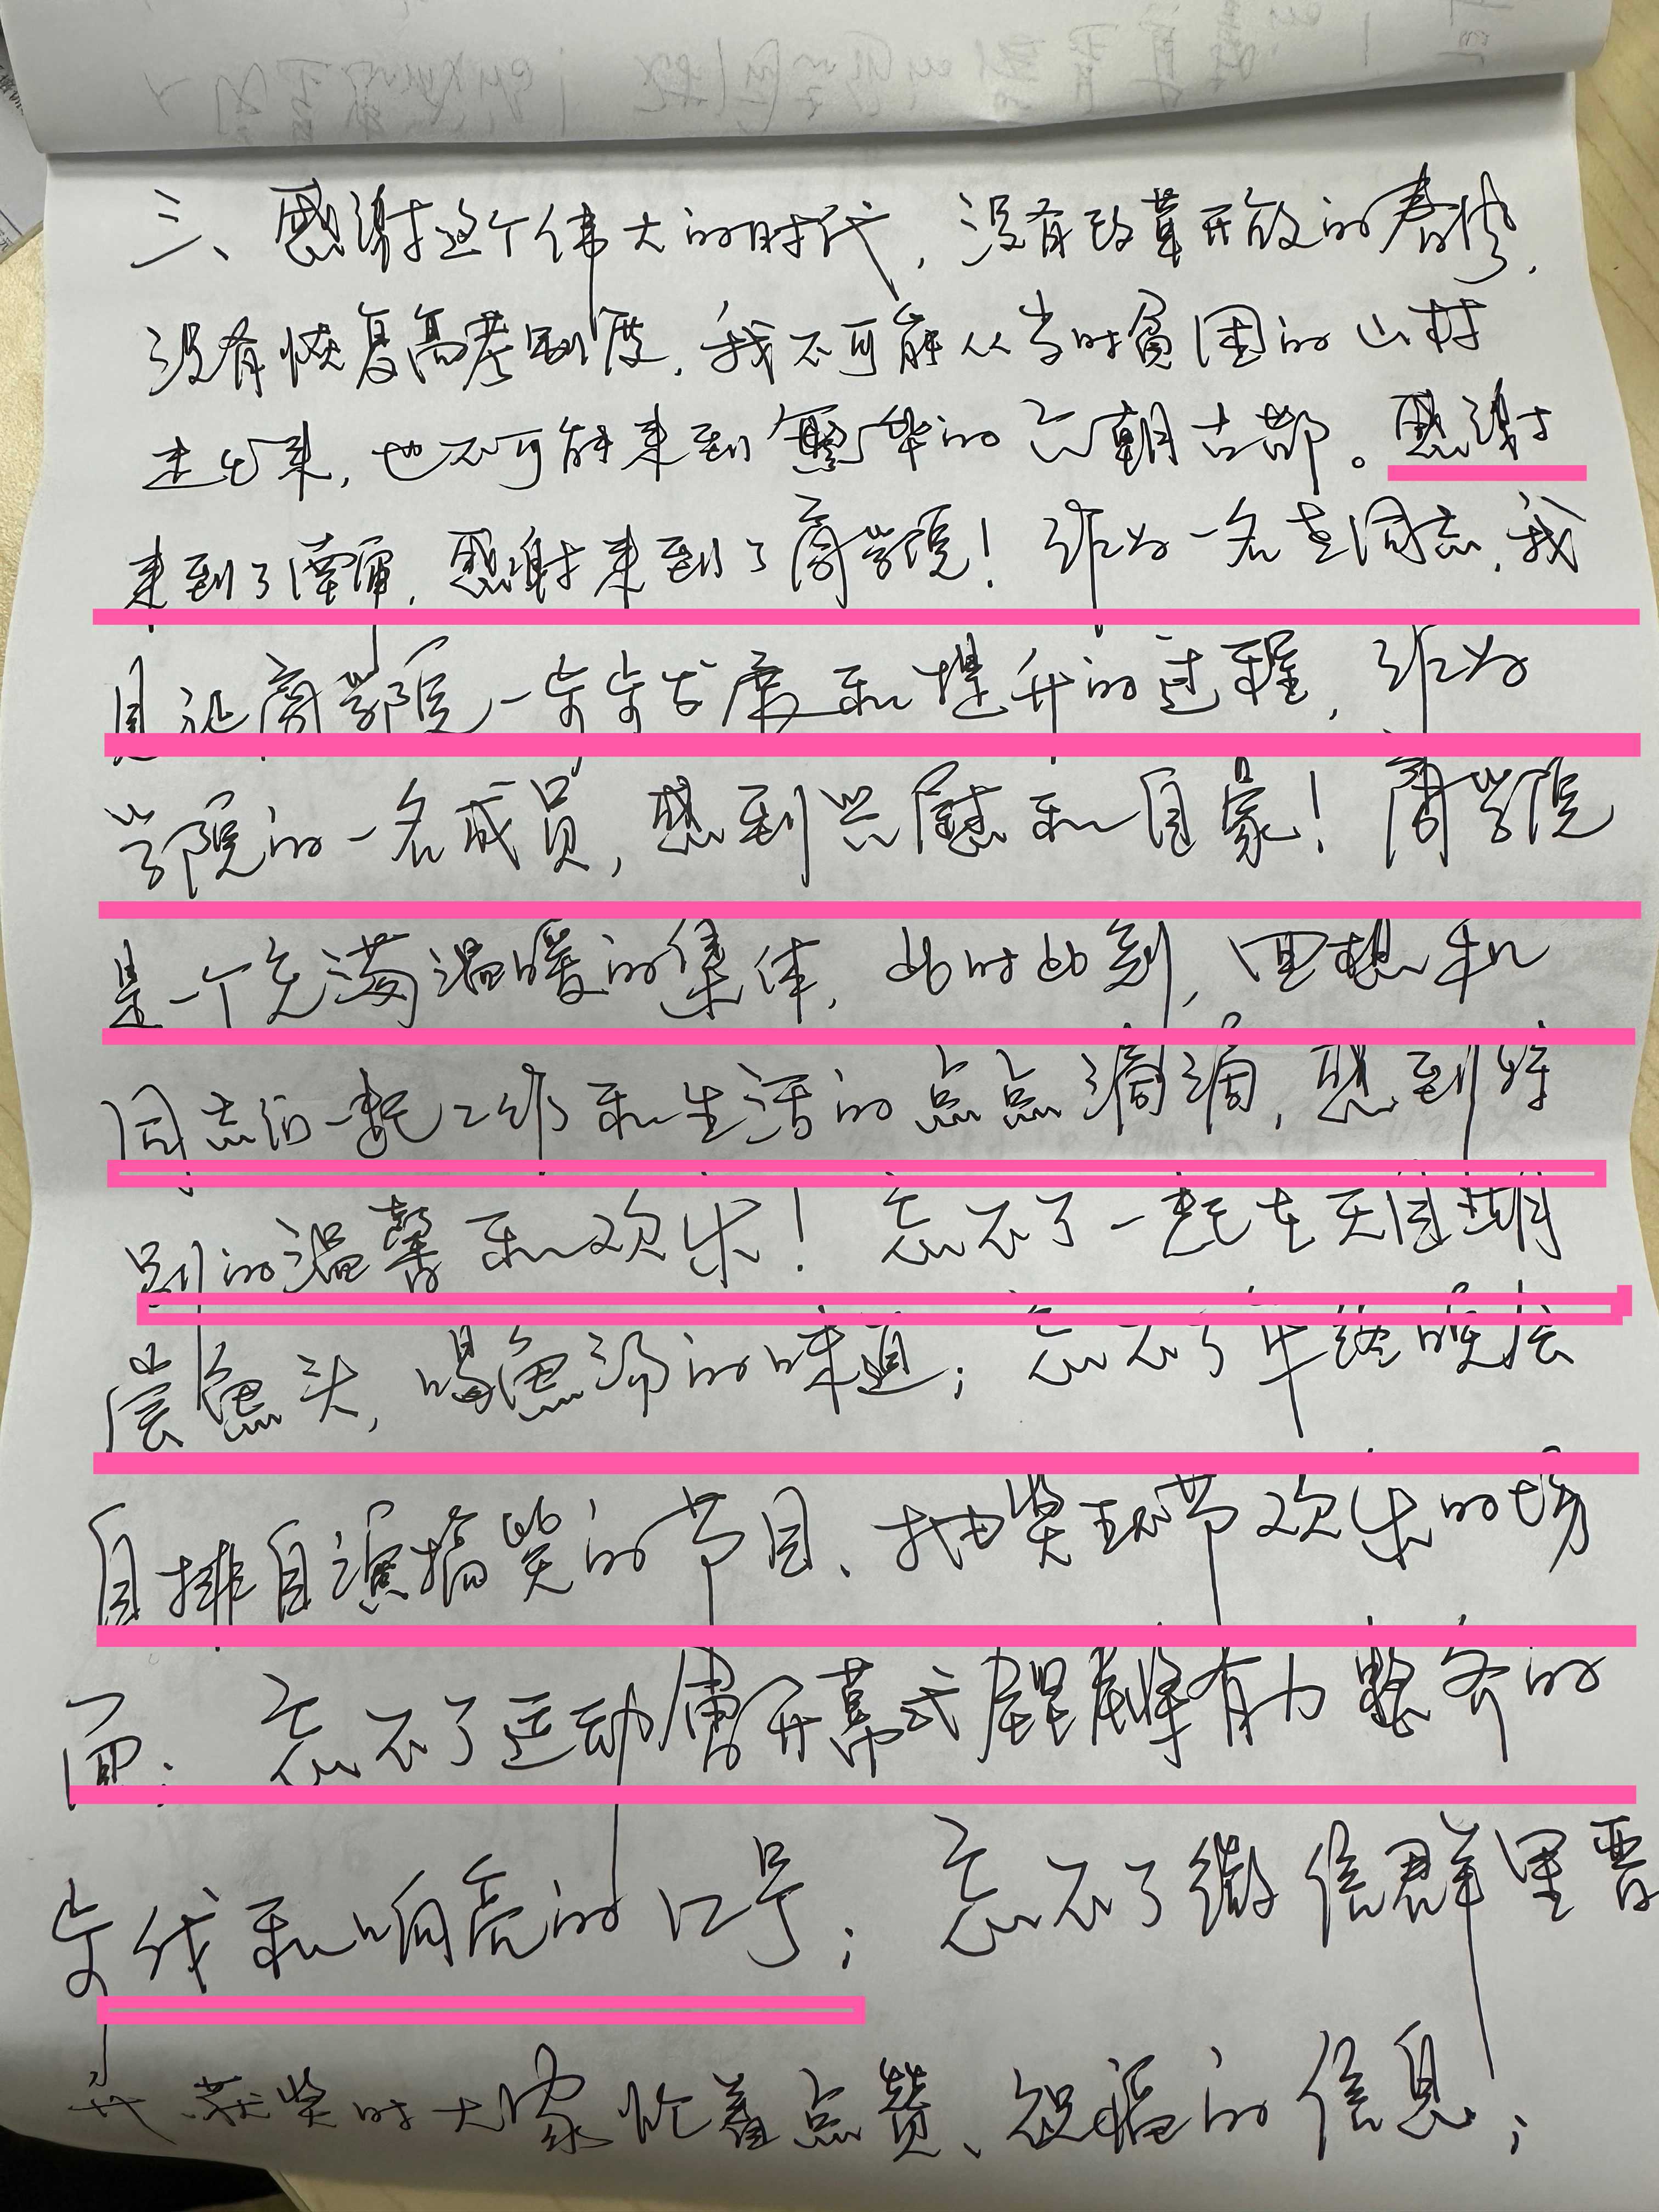 三、感谢这个伟大的时代，没有改革开放的春风，
没有恢复高考制度，我不可能从当时贫困的山村
走出来，也不可能来到繁华的六朝古都。感谢
来到了南审，感谢来到了商学院！作为一名老同志，我
见证商学院一步步发展和提升的过程，作为
学院的一名成员，感到兴慰和自豪！商学院
是一个充满温暖的集体，此时此刻，回想和
同志们一起工作和生活的点点滴滴，感到特
别的温馨和欢乐！忘不了一起在天目湖
尝鱼头，喝鱼汤的味道；忘不了年终晚会
自排自演搞笑的节目、抽奖环节欢乐的场
面；忘不了运动会开幕式展示有力整齐的
步伐和响亮的口号；忘不了微信群里晋
我获奖时大家忙着点赞、祝福的信息；